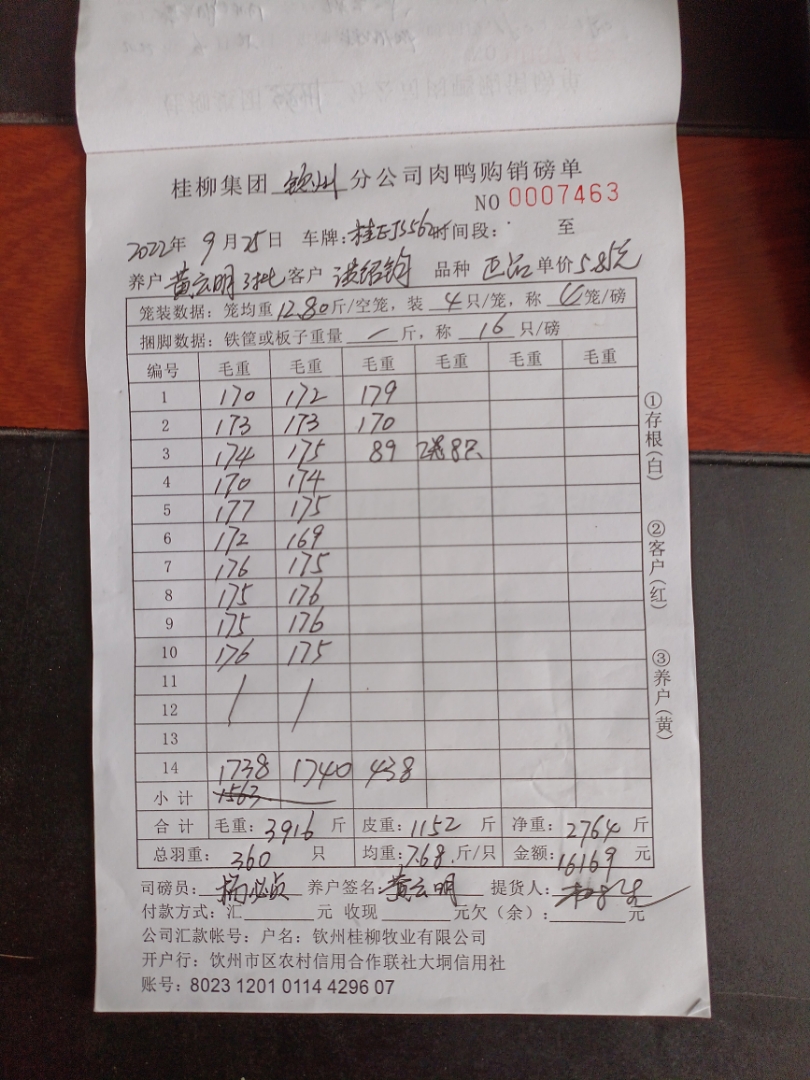 桂柳集团 钦州 分公司肉鸭购销磅单
NO 0007463
2022年 9月25日 车牌: 时间段: 至
养户 黄云明 3批 客户 洪绍钧 品种 正品 单价 5.85元
笼装数据: 笼均重 12.80 斤/空笼, 装 4 只/笼, 称 4 笼/磅
捆脚数据: 铁筐或板子重量 一 斤, 称 16 只/磅
编号 毛重 毛重 毛重 毛重 毛重 毛重
1 170 172 179
2 173 173 170
3 174 175 89 8只
4 170 174
5 177 175
6 172 169
7 176 175
8 175 176
9 175 176
10 176 175
11
12
13
14 1738 1740 438
小计 1563
合计 毛重: 3916 斤 皮重: 1152 斤 净重: 2764 斤
总羽重: 360 只 均重: 7.68 斤/只 金额: 16169 元
司磅员: 杨必贞 养户签名: 黄云明 提货人:
付款方式: 汇 元 收现 元欠(余): 元
公司汇款帐号: 户名: 钦州桂柳牧业有限公司
开户行: 饮州市区农村信用合作联社大垌信用社
账号: 8023 1201 0114 4296 07
①存根(白) ②客户(红) ③养户(黄)